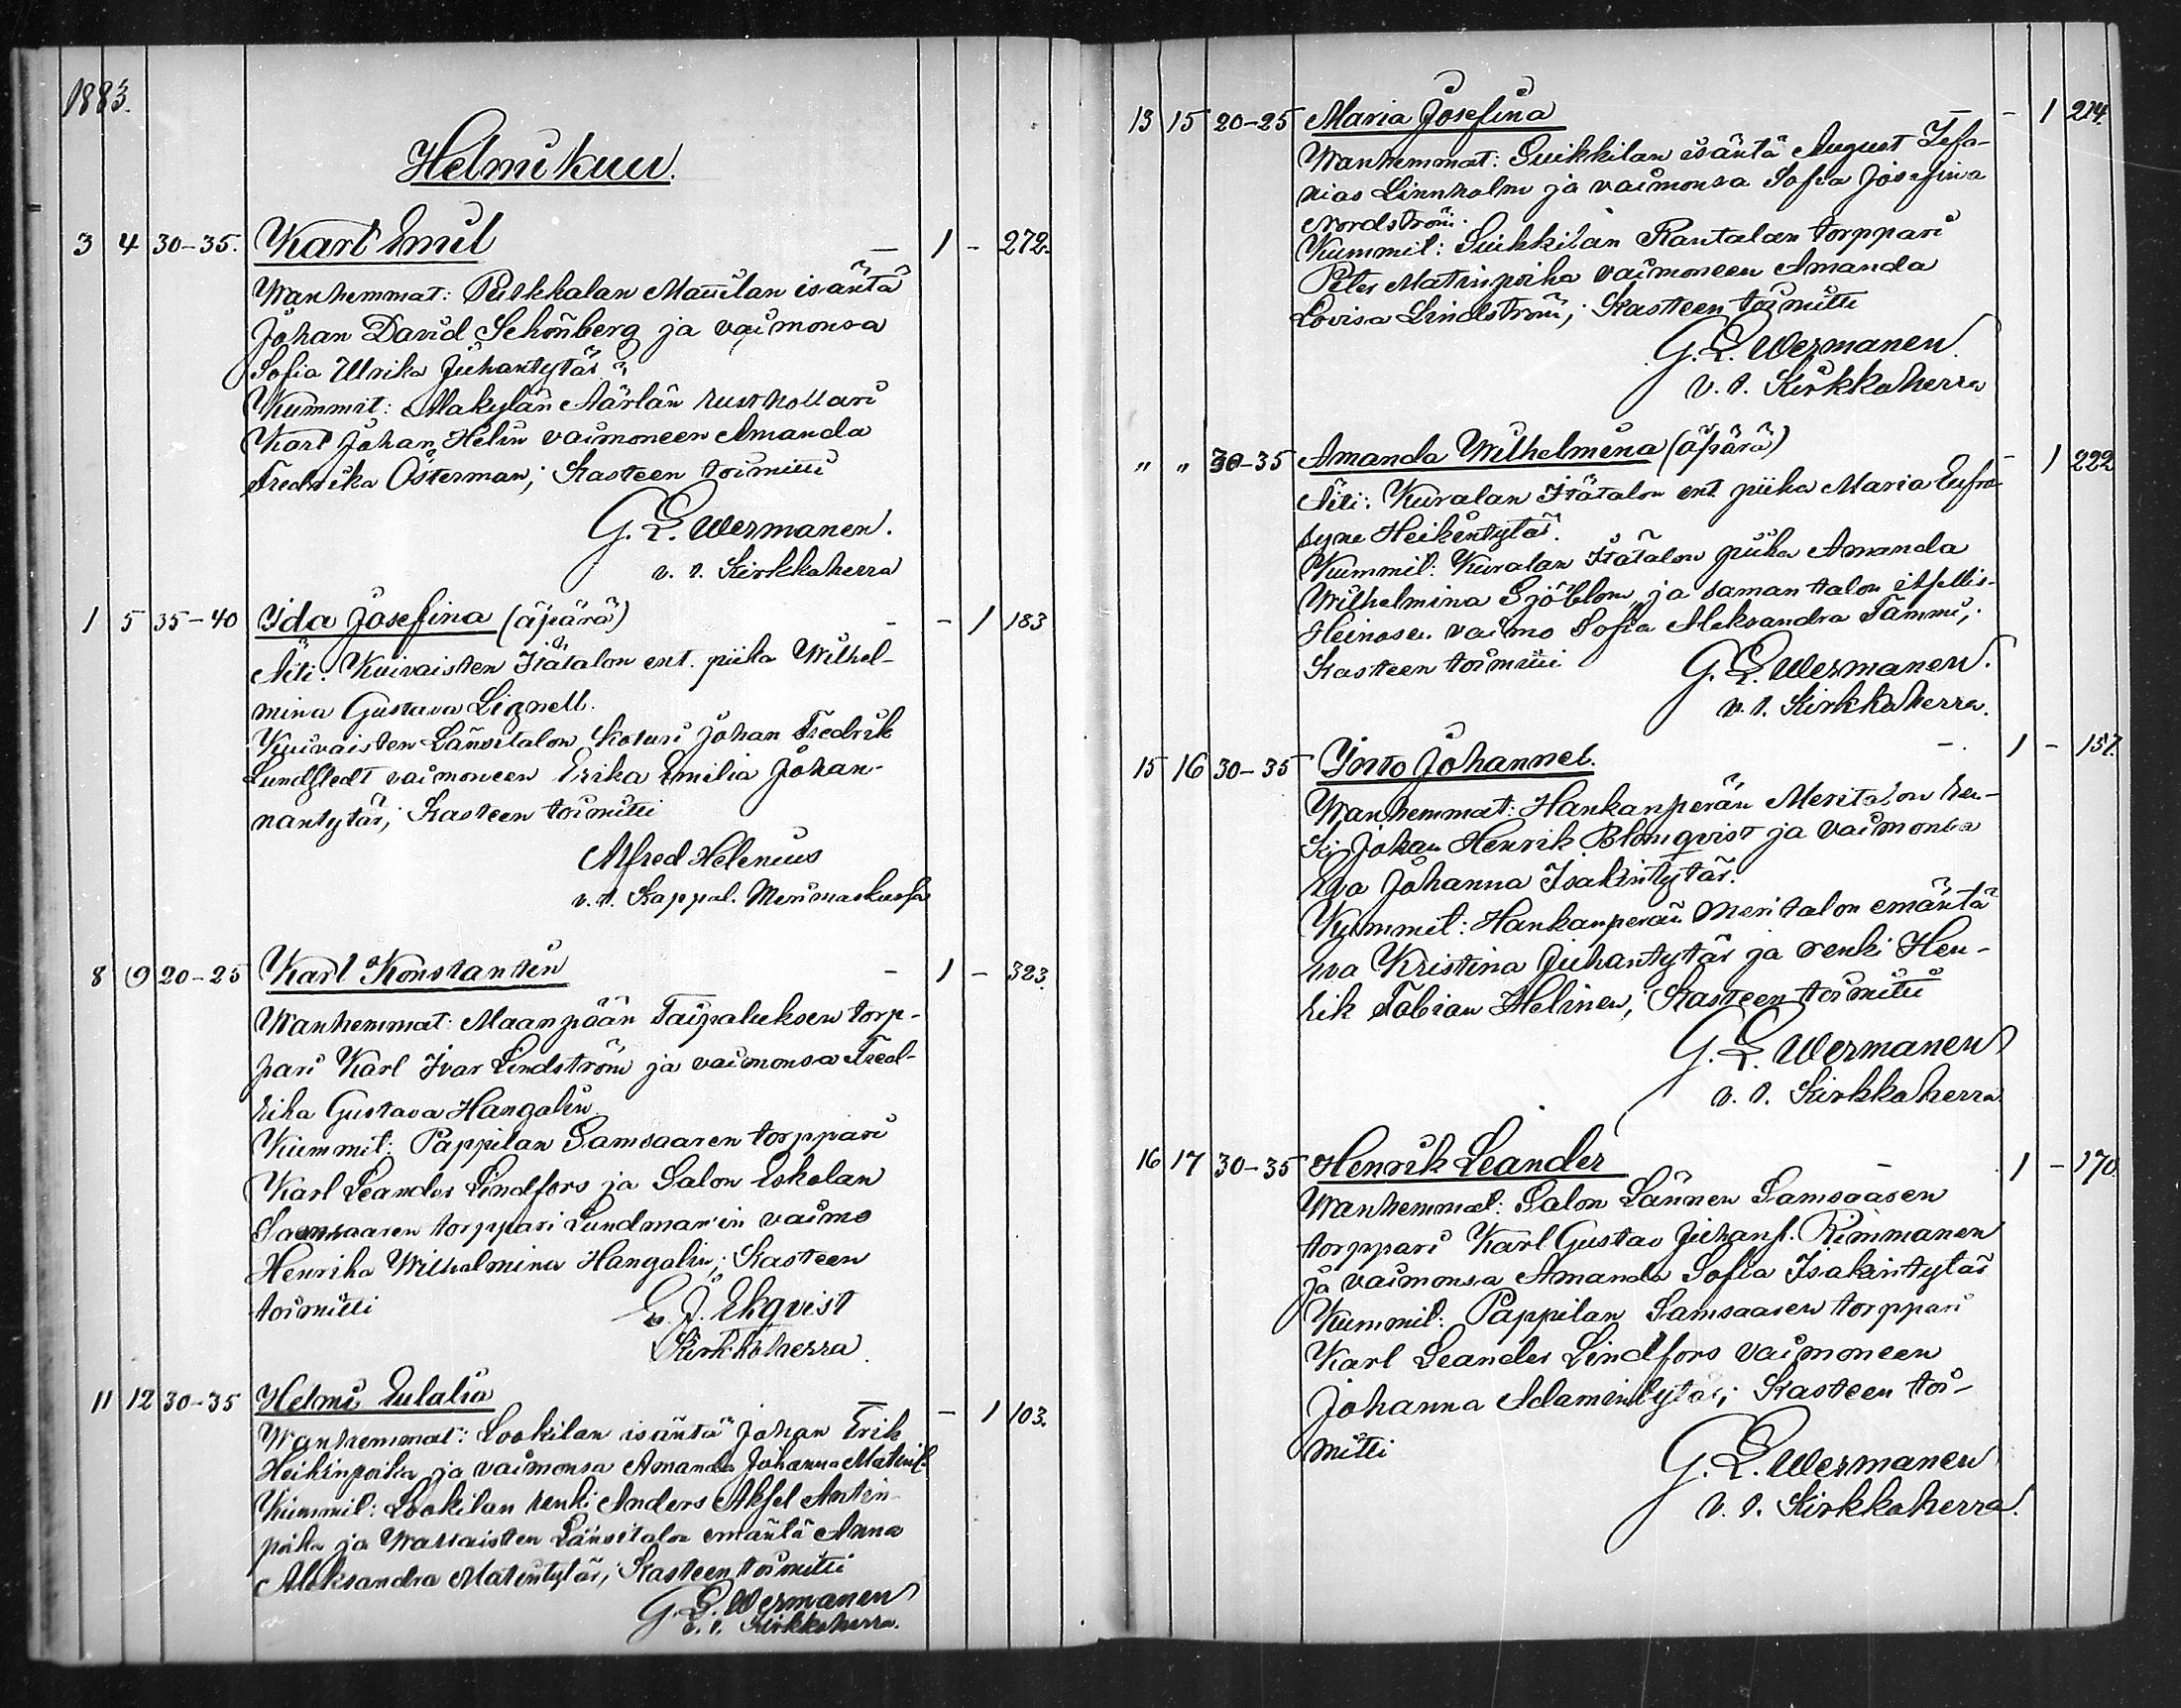 1883.
Helmi kuu.
3 4 30-35. Karl Emil — 1 - 272.
Wanhemmat: Puskkalan Mattilan isäntä
Johan David Schönberg ja vaimonsa
Sofia Ulrika Juhantytär;
Kummit: Makylän Aärlän rusthollari
Karl Johan Helin vaimoneen Amanda
Fredrika Österman; Kasteen toimitti
G. L. Wermanen.
v. t. Kirkkoherra
1 5 35-40 Ida Josefina (äpärä) - - 1 183
Äiti: Kuivaisten Itätalon ent. piika Wilhel-
mina Gustava Lignell.
Kuivaisten Länsitalon Koturi Johan Fredrik
Lundstedt vaimoneen Erika Emilia Johan-
nantytär; Kasteen toimitti
Alfred Helenius
v. t. Kappal. Merimaskussa
8 9 20-25 Karl Konstantin - 1 - 323.
Wanhemmat: Maanpään Taipaluksen torp-
pari Karl Ivar Lindström ja vaimonsa Fred-
rika Gustava Hangelin
Kummit: Pappilan Samsaaren torppari
Karl Leander Lindfors ja Salon Eskolan
Samsaaren torppari Lundmar'in vaimo
Henrika Wilhelmina Hangelin; Kasteen
toimitti G. J. Ekqvist
Kirkkoherra
11 12 30-35 Helmi Eulalia — - 1 103.
Wanhemmat: Lookilan isäntä Johan Erik
Heikinpoika ja vaimonsa Amanda Johanna Matint.
Kummit: Lookilan renki Anders Aksel Antin-
poika ja Wassaisten Länsitalon emäntä Anna
Aleksandra Matintytär; Kasteen toimitti
G. L. Wermanen
v. t. Kirkkoherra.
13 15 20-25 Maria Josefina — - 1 214.
Wanhemmat: Suikkilan isäntä August Sefa-
nias Linnholm ja vaimonsa Sofia Josefina
Nordström.
Kummit: Suikkilan Rantalan torppari
Peter Matinpoika vaimoneen Amanda
Lovisa Lindström; Kasteen toimitti
G. L. Wermanen
v. t. Kirkkoherra
" " 30-35 Amanda Wilhelmina (äpärä) - 1 222
Äiti: Kuralan Itätalon ent. piika Maria Eufro-
syne Heikintytär.
Kummit: Kuralan Itätalon piika Amanda
Wilhelmina Sjöblom, ja saman talon itsellis-
Heinosen vaimo Sofia Aleksandra Tammi;
Kasteen toimitti G. L. Wermanen.
v. t. Kirkkoherra.
15 16 30-35 Into Johannes. - 1 - 157.
Wanhemmat: Hankanperän Meritalon ren-
ki Johan Henrik Blomqvist ja vaimonsa
Eva Johanna Isakintytär.
Kummit: Hankanperän Meritalon emäntä
Eva Kristina Juhantytär ja renki Hen-
rik Fabian Helinen; Kasteen toimitti
G. L. Wermanen
v. t. Kirkkoherra
16 17 30-35 Henrik Leander - 1 - 170.
Wanhemmat: Salon Lännen Samsaaren
torppari Karl Gustav Juhanp. Rimmanen
ja vaimonsa Amanda Sofia Isakintytär
Kummit: Pappilan Samsaaren torppari
Karl Leander Lindfors vaimoneen
Johanna Adamintytär; Kasteen toi-
mitti
G. L. Wermanen
v. t. Kirkkoherra.